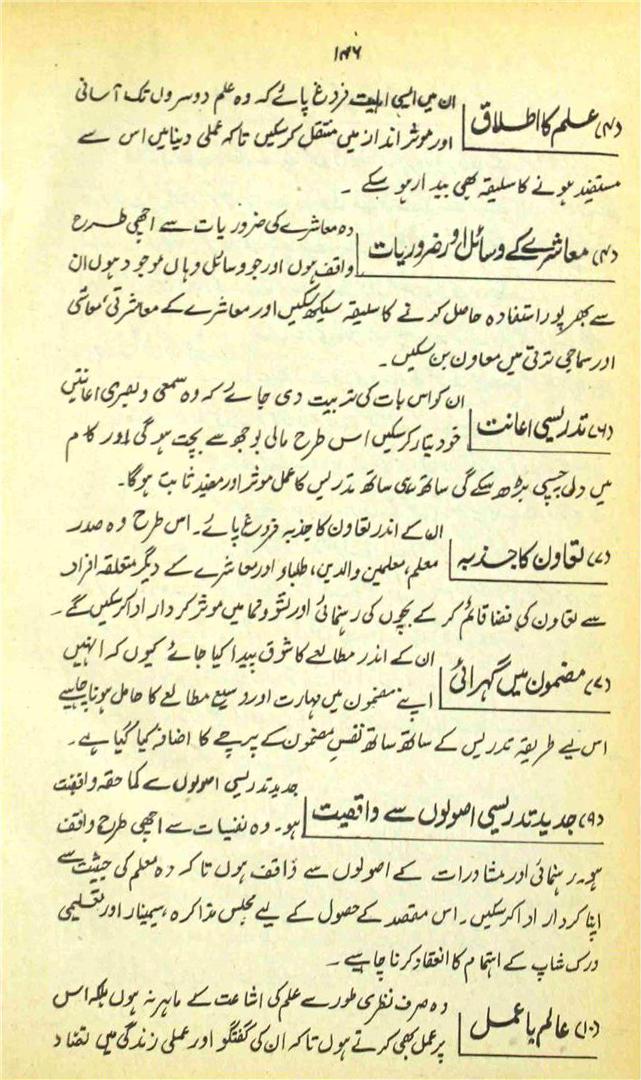 ۱۴۶
(۴) علم کا اطلاق ان میں ایسی اہلیت فروغ پائے کہ وہ علم دوسروں تک آسانی
اور موثر انداز میں منتقل کرسکیں تاکہ عملی دنیا میں اس سے
مستفید ہونے کا سلیقہ بھی بیدار ہو سکے ۔
(۴) معاشرے کے وسائل اور ضروریات وہ معاشرے کی ضروریات سے اچھی طرح
واقف ہوں اور جو وسائل وہاں موجود ہوں ان
سے بھرپور استفادہ حاصل کرنے کا سلیقہ سیکھ سکیں اور معاشرے کے معاشرتی، معاشی
اور سماجی ترقی میں معاون بن سکیں۔
(۶) تدریسی اعانت ان کو اس بات کی تربیت دی جائے کہ وہ سمعی و بصری اعانتیں
خود تیار کرسکیں اس طرح مالی بوجھ سے بچت ہوگی اور کام
میں دلچسپی بڑھ سکے گی ساتھ ہی ساتھ تدریس کا عمل موثر اور مفید ثابت ہوگا۔
(۷) تعاون کا جذبہ ان کے اندر تعاون کا جذبہ فروغ پائے۔ اس طرح وہ صدر
معلم، معلمین والدین، طلباء اور معاشرے کے دیگر متعلقہ افراد
سے تعاون کی فضا قائم کر کے بچوں کی رہنمائی اور نشوونما میں موثر کردار ادا کرسکیں گے۔
(۷) مضمون میں گہرائی ان کے اندر مطالعے کا شوق پیدا کیا جائے کیوں کہ انہیں
اپنے مضمون میں مہارت اور وسیع مطالعے کا حامل ہونا چاہیے
اس لیے طریقۂ تدریس کے ساتھ ساتھ نفسِ مضمون کے پرچے کا اضافہ کیا گیا ہے۔
(۹) جدید تدریسی اصولوں سے واقفیت جدید تدریسی اصولوں سے کما حقہ واقفیت
ہو۔ وہ نفسیات سے اچھی طرح واقف
ہو۔ رہنمائی اور مشاورات کے اصولوں سے واقف ہوں تاکہ وہ معلم کی حیثیت سے
اپنا کردار ادا کرسکیں۔ اس مقصد کے حصول کے لیے مجلس مذاکرہ، سیمینار اور تعلیمی
ورک شاپ کے اہتمام کا انعقاد کرنا چاہیے۔
(۱۰) عالم باعمل وہ صرف نظری طور سے علم کی اشاعت کے ماہر نہ ہوں بلکہ اس
پر عمل بھی کرتے ہوں تاکہ ان کی گفتگو اور عملی زندگی میں تضاد